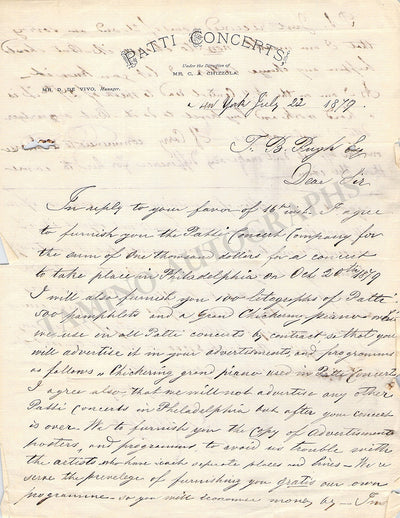 PATTI CONCERTS
Under the Direction of
MR. C. A. CHIZZOLA.
MR. D. DE VIVO, Manager.
New York July 22 1879.
T. B. Pugh Esq
Dear Sir
In reply to your favor of 16th inst. I agree
to furnish you the Patti Concert Company for
the sum of One thousand dollars for a concert
to take place in Philadelphia on Oct 20th 1879
I will also furnish you 100 litographs of Patti
500 pamphlets and a Grand Chickering piano which
we use in all Patti concerts by contract so that you
will advertise it in your advertisements, and programmes
as follows "Chickering grand piano used in Patti Concerts
I agree also, that we will not advertise any other
Patti Concerts in Philadelphia but after your concert
is over. We to furnish you the Copy of Advertisements
posters, and programme to avoid us trouble with
the artists who have each separate places and lines – We re
serve the privelege of furnishing you gratis our own
programme – so you will economise money by – I'm
TAMINO AUTOGRAPHS